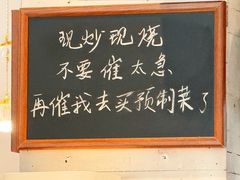 现炒现烧
不要催太急
再催我去买预制菜了